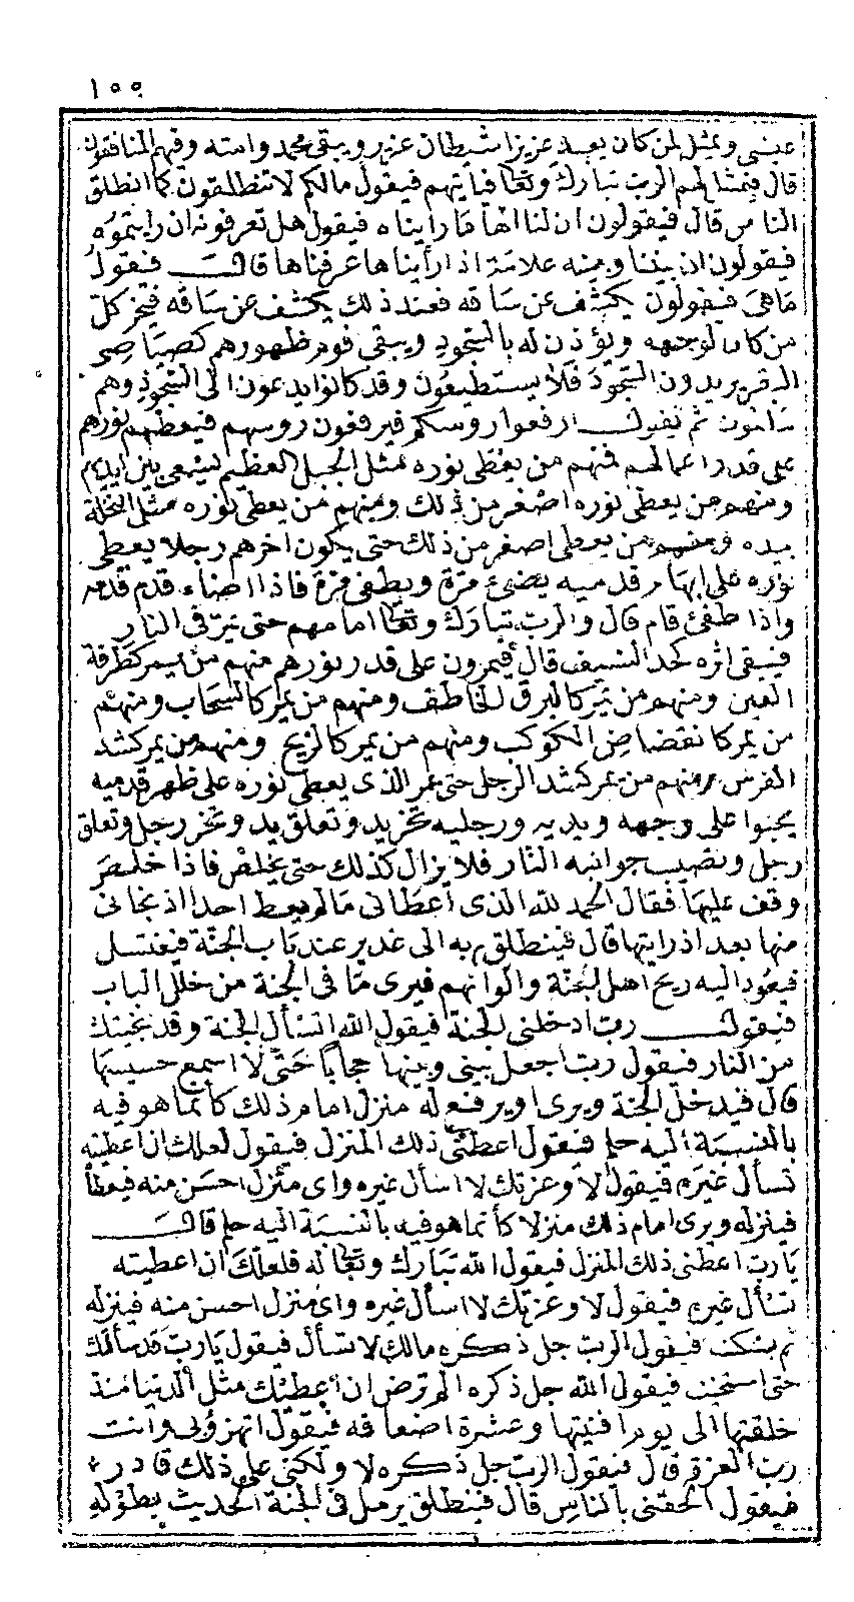 ١٥٥
عيسى ويمثل لمن كان يعبد عزيرا شيطان عزير ويبقى محمد وامته وفيهم المنافقون
قال فيتمثل لهم الرب تبارك وتعا فيأتيهم فيقول مالكم لا تنطلقون كما انطلق
الناس قال فيقولون ان لنا الها ما رايناه فيقول هل تعرفونه ان رايتموه
فيقولون ان بيننا وبينه علامة اذا رأيناها عرفناها قال فيقول
ما هى فيقولون يكشف عن ساقه فعند ذلك يكشف عن ساقه فيخر كل
من كان لوجهه ويؤذن له بالسجود ويبقى قوم ظهورهم كصياصى
البقر يريدون السجود فلا يستطيعون وقد كانوا يدعون الى السجود وهم
سالمون ثم يقول ارفعوا روسكم فيرفعون روسهم فيعطيهم نورهم
على قدر اعمالهم فمنهم من يعطى نوره مثل الجبل العظيم ليسعى بين ايديهم
ومنهم من يعطى نوره اصغر من ذلك ومنهم من يعطى نوره مثل النخلة
بيده ومنهم من يعطى اصغر من ذلك حتى يكون اخرهم رجلا يعطى
نوره على ابهام قدميه يضئ مرة ويطفى مرة فاذا اضاء قدم قدمه
واذا طفئ قام قال والرب تبارك وتعا امامهم حتى يمر فى النار
فيبقى اثره كحد السيف قال فيمرون على قدر نورهم منهم من يمر كطرفة
العين ومنهم من يمر كالبرق الخاطف ومنهم من يمر كالسحاب ومنهم
من يمر كانقضاض الكوكب ومنهم من يمر كالريح ومنهم من يمر كشد
الفرس ومنهم من يمر كشد الرجل حتى يمر الذى يعطى نوره على ظهر قدميه
يحبوا على وجهه ويديه ورجليه تخر يد وتعلق يد وتخر رجل وتعلق
رجل وتصيب جوانبه النار فلا يزال كذلك حتى يخلص فاذا خلص
وقف عليها فقال الحمد لله الذى أعطانى ما لم يعط احدا اذ نجانى
منها بعد اذ رايتها قال فينطلق به الى غدير عند باب الجنة فيغتسل
فيعود اليه ريح اهل الجنة والوانهم فيرى ما فى الجنة من خلل الباب
فيقول رب ادخلنى الجنة فيقول الله اتسأل الجنة وقد نجيتك
من النار فيقول رب اجعل بينى وبينها حجابا حتى لا اسمع حسيسها
قال فيدخل الجنة ويرى او يرفع له منزل امام ذلك كأنما هو فيه
بالنسبة اليه حلم فيقول اعطنى ذلك المنزل فيقول لعلك ان اعطيته
تسأل غيره فيقول لا وعزتك لا اسأل غيره واى منزل احسن منه فيعطا
فينزله ويرى امام ذلك منزلا كأنما هو فيه بالنسبة اليه حلم قال
يارب اعطنى ذلك المنزل فيقول الله تبارك وتعا له فلعلك ان اعطيته
تسأل غيره فيقول لا وعزتك لا اسأل غيره واى منزل احسن منه فينزله
ثم يسكت فيقول الرب جل ذكره مالك لا تسأل فيقول يارب قد سألتك
حتى استحيت فيقول الله جل ذكره الم ترض ان أعطيتك مثل الدنيا منذ
خلقتها الى يوم افنيتها وعشرة اضعافه فيقول اتهزؤ بى وانت
رب العزة قال فيقول الرب جل ذكره لا ولكنى على ذلك قادر
فيقول الحقنى بالناس قال فينطلق يرمل فى الجنة الحديث بطوله